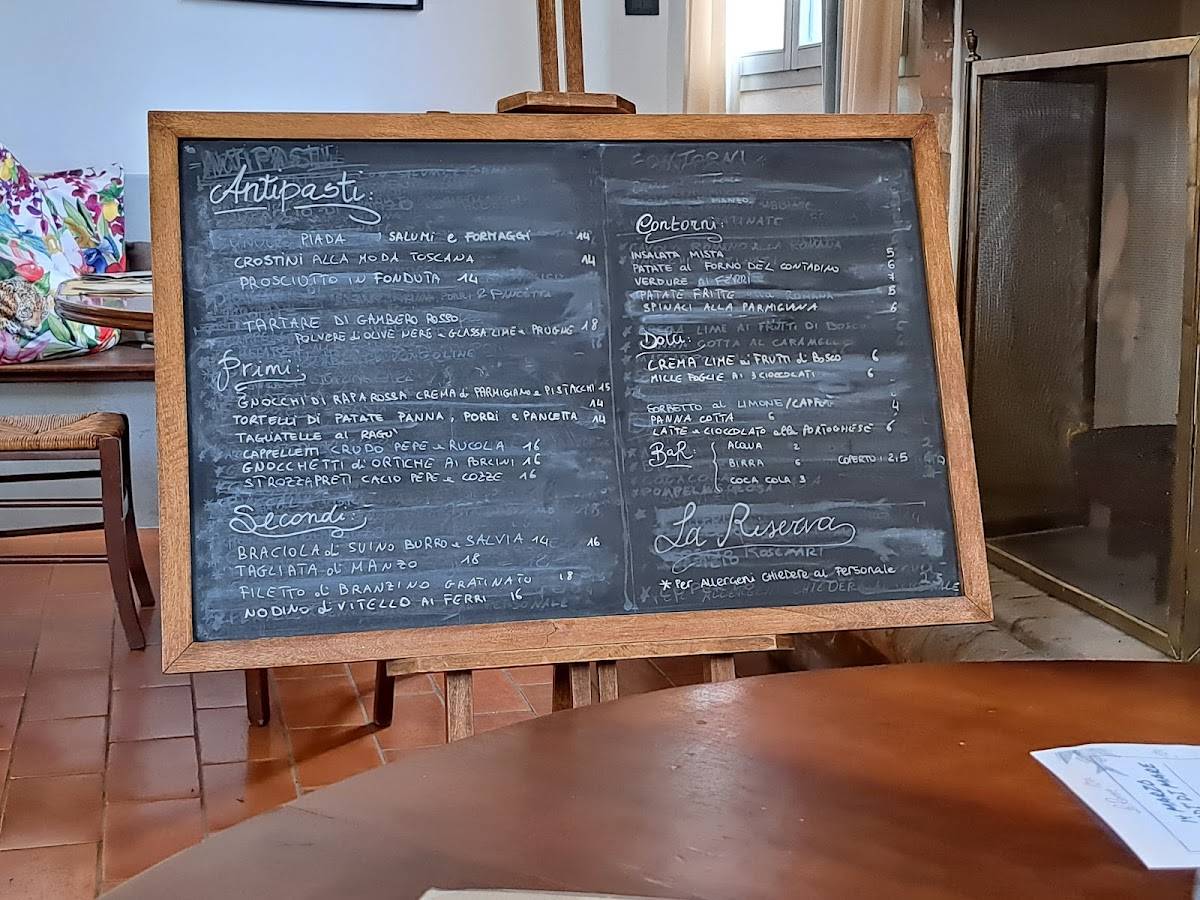 Antipasti:
PIADA, SALUMI e FORMAGGI 14
CROSTINI ALLA MODA TOSCANA 14
PROSCIUTTO IN FONDUTA 14
TARTARE DI GAMBERO ROSSO
POLVERE di OLIVE NERE e GLASSA LIME e PRUGNE 18
Primi:
GNOCCHI DI RAPA ROSSA CREMA di PARMIGIANO e PISTACCHI 15
TORTELLI DI PATATE PANNA, PORRI e PANCETTA 14
TAGLIATELLE al RAGU' 14
CAPPELLETTI CRUDO PEPE e RUCOLA 16
GNOCCHETTI di ORTICHE AI PORCINI 16
STROZZAPRETI CACIO PEPE e COZZE 16
Secondi:
BRACIOLA di SUINO BURRO e SALVIA 14 16
TAGLIATA di MANZO 18
FILETTO di BRANZINO GRATINATO 18
NODINO di VITELLO AI FERRI 16
Contorni:
INSALATA MISTA 5
PATATE al FORNO DEL CONTADINO 6
VERDURE AI FERRI
PATATE FRITTE 5
SPINACI ALLA PARMIGIANA 6
Dolci:
CREMA LIME ai FRUTTI di BOSCO 6
MILLE FOGLIE AI 3 CIOCCOLATI 6
SORBETTO al LIMONE/CAFFÈ 4
PANNA COTTA 6
LATTE e CIOCCOLATO alla PORTOGHESE 6
BAR: ACQUA 2
BIRRA 6 COPERTO: 2,5
COCA COLA 3
La Riserva
* Per ALLERGENI CHIEDERE al Personale
14 MARZO